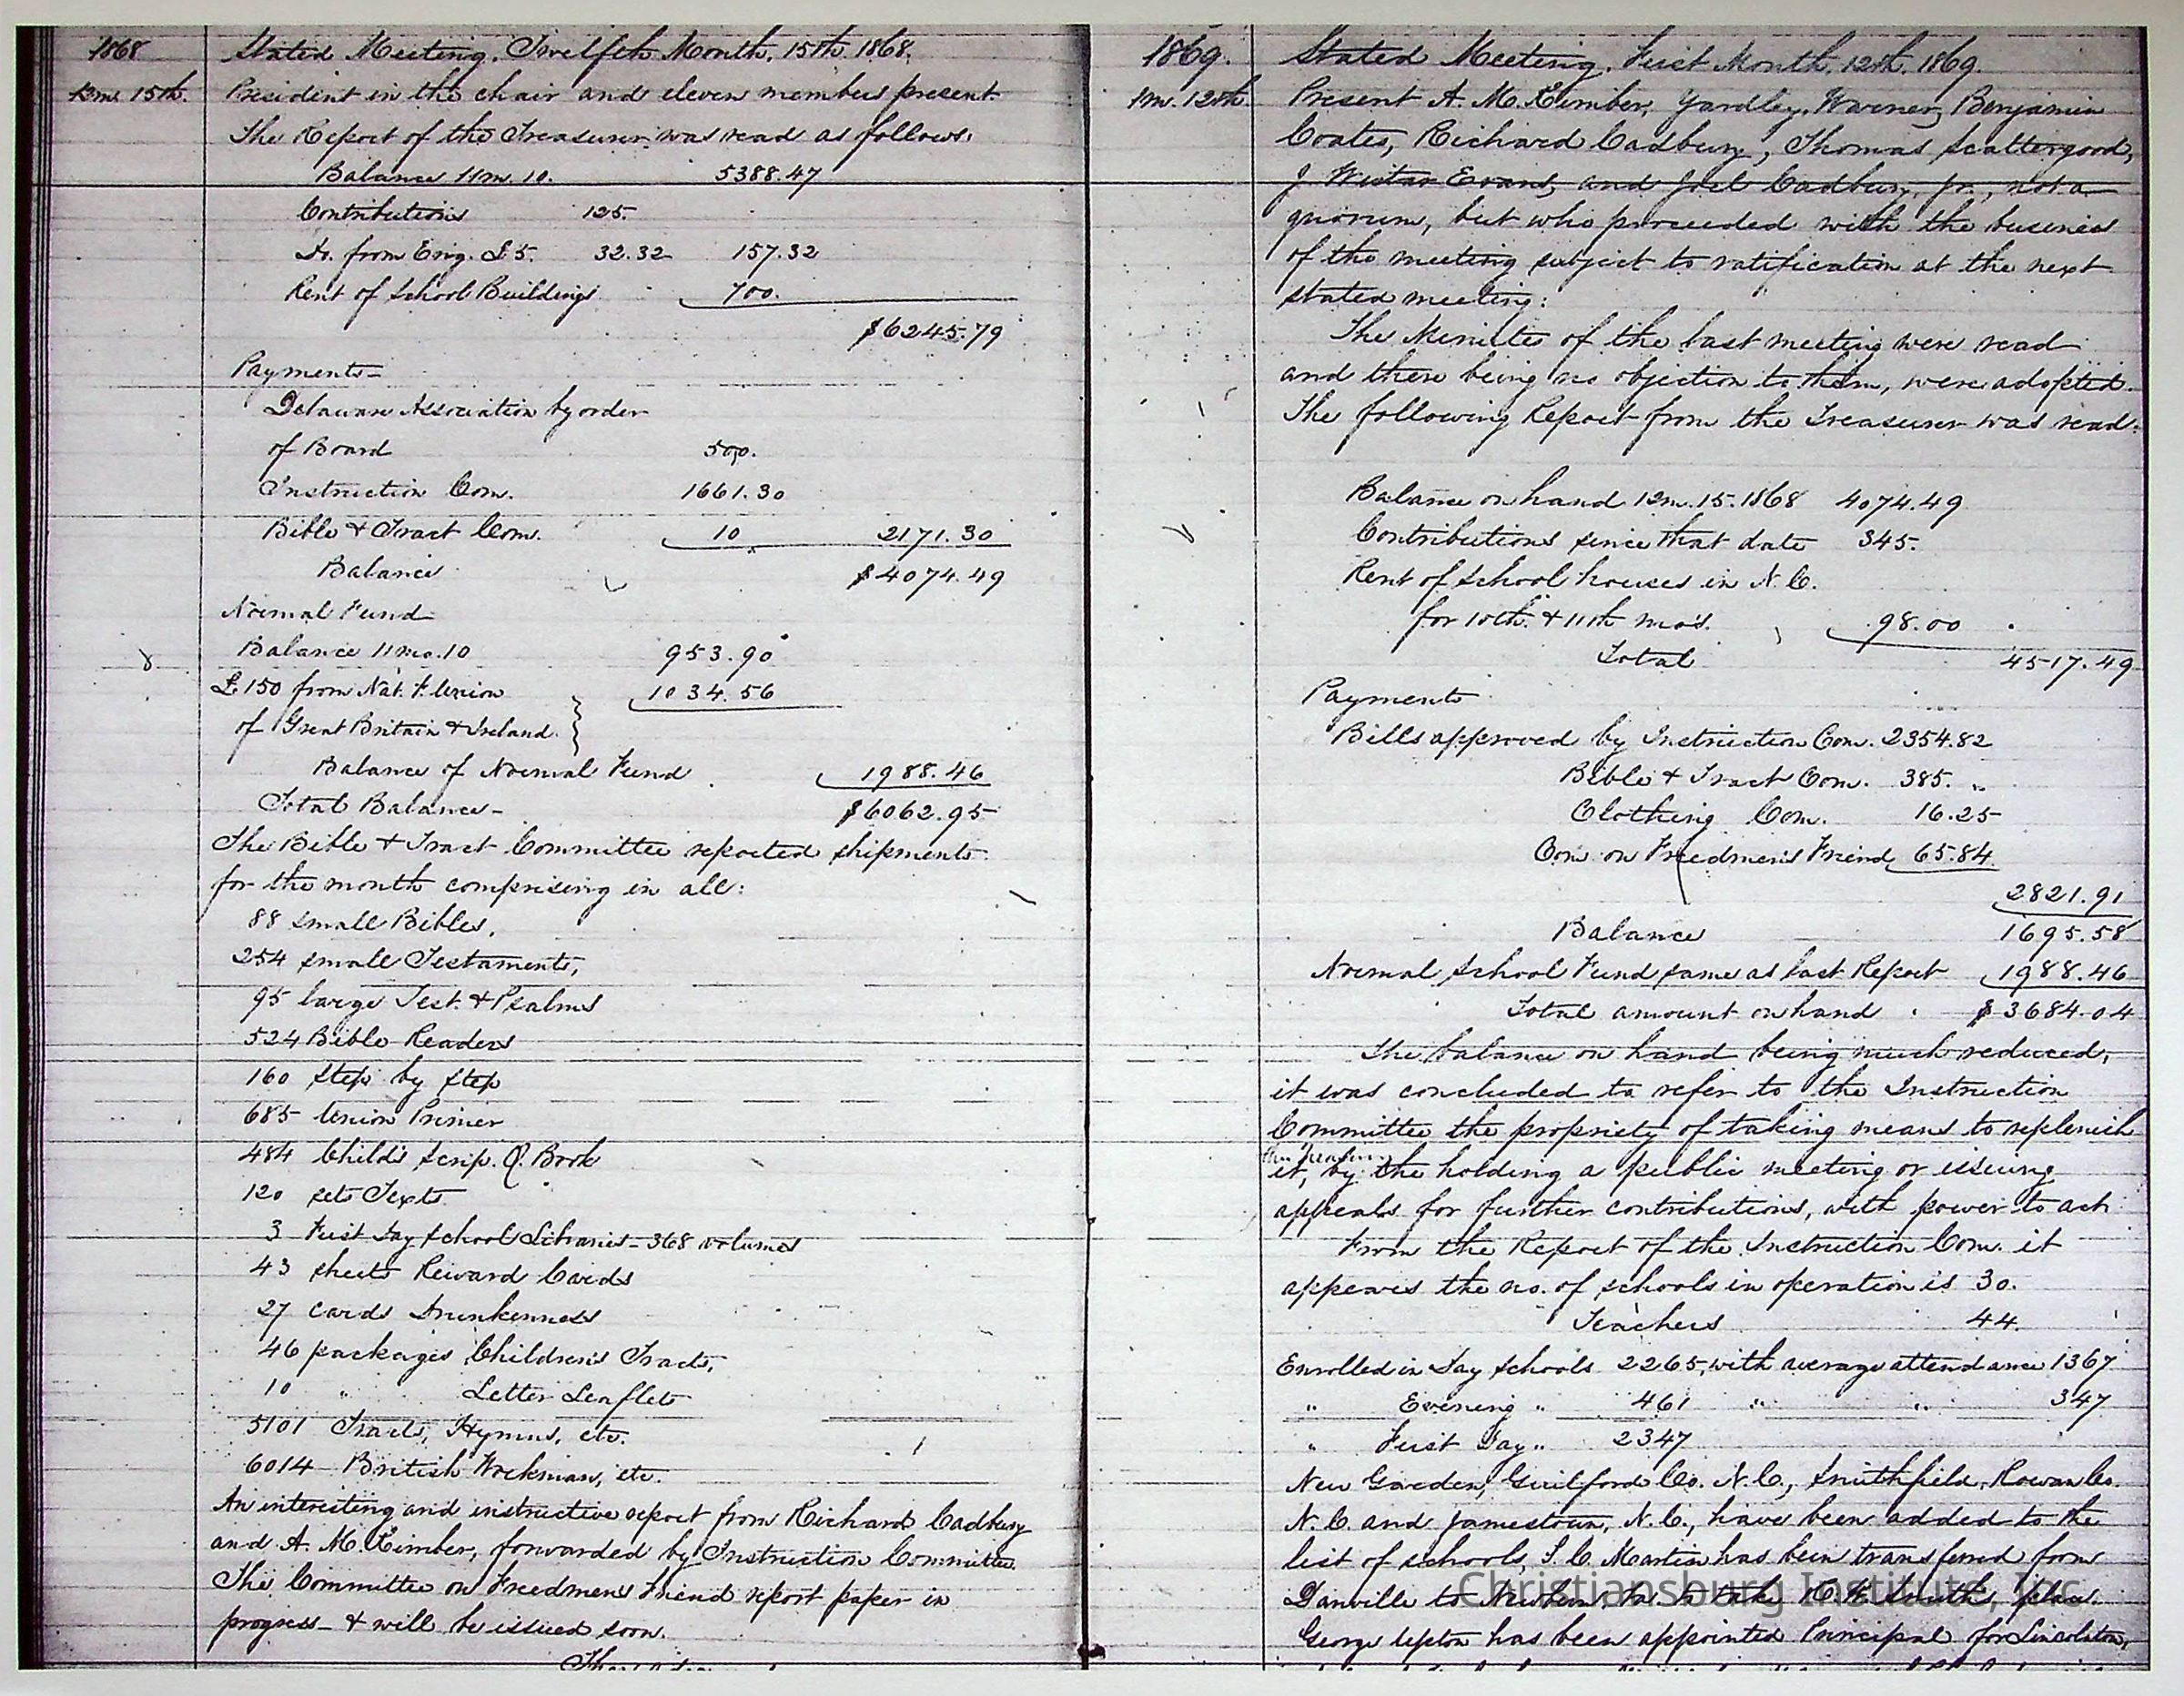 1868
Stated Meeting, Twelfth Month, 15th 1868.
12m. 15th.
President in the chair and eleven members present.
The Report of the Treasurer was read as follows:
Balance 11m. 10. 5388.47
Contributions 125.
Do. from Eng. £5. 32.32 157.32
Rent of School Buildings 700.
$6245.79
Payments-
Delaware Association by order
of Board 500.
Instruction Com. 1661.30
Bible & Tract Com. 10 2171.30
Balance $4074.49
Normal Fund
Balance 11mo. 10 953.90
£150 from Nat. F. Union 1034.56
of Great Britain & Ireland
Balance of Normal Fund 1988.46
Total Balance- $6062.95
The Bible & Tract Committee reported shipments
for the month comprising in all:
88 small Bibles,
254 small Testaments,
95 large Test. & Psalms
524 Bible Readers
160 Step by Step
685 Union Primer
484 Child's Scrip. Q. Book
120 sets Texts
3 First Day School Libraries - 368 volumes
43 sheets Reward Cards
27 cards Drunkenness
46 packages Children's Tracts,
10 " Letter Leaflets
5101 Tracts, Hymns, etc.
6014 British Workman, etc.
An interesting and instructive report from Richard Cadbury
and A. M. Kimber, forwarded by Instruction Committee.
The Committee on Freedmen's Friend report paper in
progress - & will be issued soon.
1869.
Stated Meeting, First Month, 12th, 1869.
1m. 12th.
Present A. M. Kimber, Yardley Warner, Benjamin
Coates, Richard Cadbury, Thomas Scattergood,
J. Wistar Evans, and Joel Cadbury, jr., not a
quorum, but who proceeded with the business
of the meeting subject to ratification at the next
stated meeting:
The Minutes of the last meeting were read
and there being no objection to them, were adopted.
The following Report from the Treasurer was read:
Balance on hand 12m. 15. 1868 4074.49
Contributions since that date 345.
Rent of School houses in N.C.
for 10th. & 11th mos. 98.00
Total 4517.49
Payments
Bills approved by Instruction Com. 2354.82
Bible & Tract Com. 385. "
Clothing Com. 16.25
Com. on Freedmen's Friend 65.84
2821.91
Balance 1695.58
Normal School Fund same as last Report 1988.46
Total amount on hand $3684.04
The balance on hand being much reduced,
it was concluded to refer to the Instruction
Committee the propriety of taking means to replenish
it, by the holding a public meeting or issuing
appeals for further contributions, with power to act
From the Report of the Instruction Com. it
appears the no. of schools in operation is 30.
Teachers 44.
Enrolled in Day Schools 2265, with average attendance 1367
" Evening " 461 " " 347
" First Day " 2347
New Garden, Guilford Co. N.C., Smithfield, Rowan Co.
N.C. and Jamestown, N.C., have been added to the
list of schools, S. C. Martin has been transferred from
Danville to to take place.
George Upton has been appointed Principal for Lincolnton,
Christiansburg Institute, Inc.